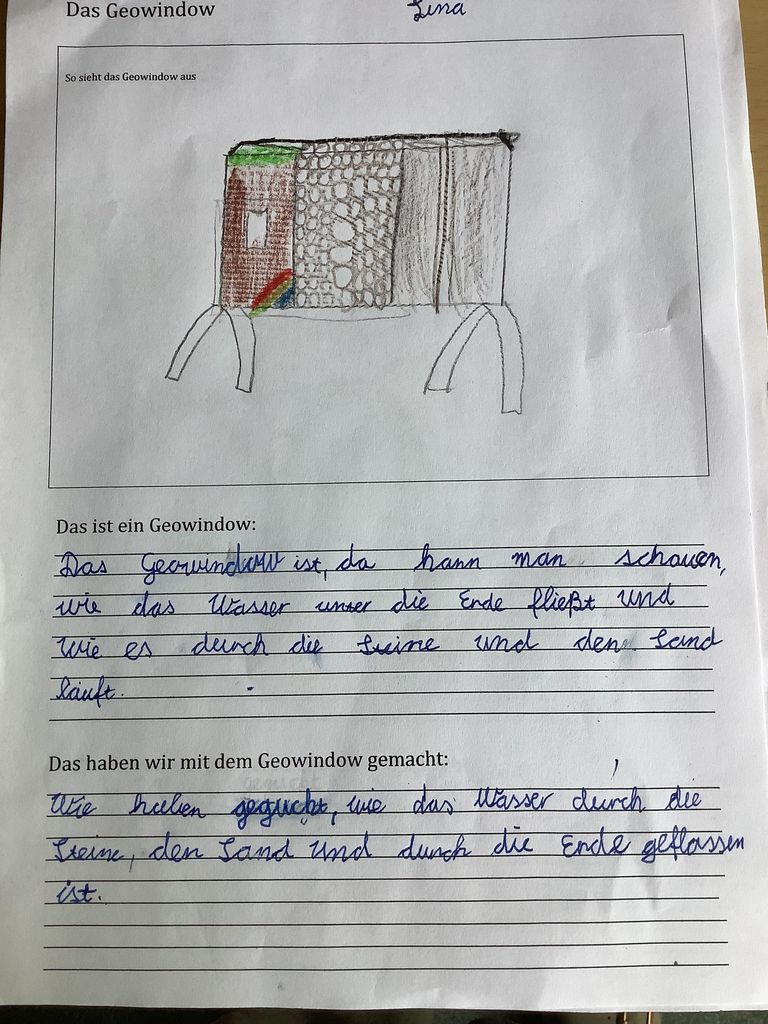 Das Geowindow
Lina
So sieht das Geowindow aus
Das ist ein Geowindow:
Das Geowindow ist, da kann man schauen,
wie das Wasser unter die Erde fließt und
wie es durch die Steine und den Sand
läuft.
Das haben wir mit dem Geowindow gemacht:
Wie haben geguckt, wie das Wasser durch die
Steine, den Sand und durch die Erde geflossen
ist.